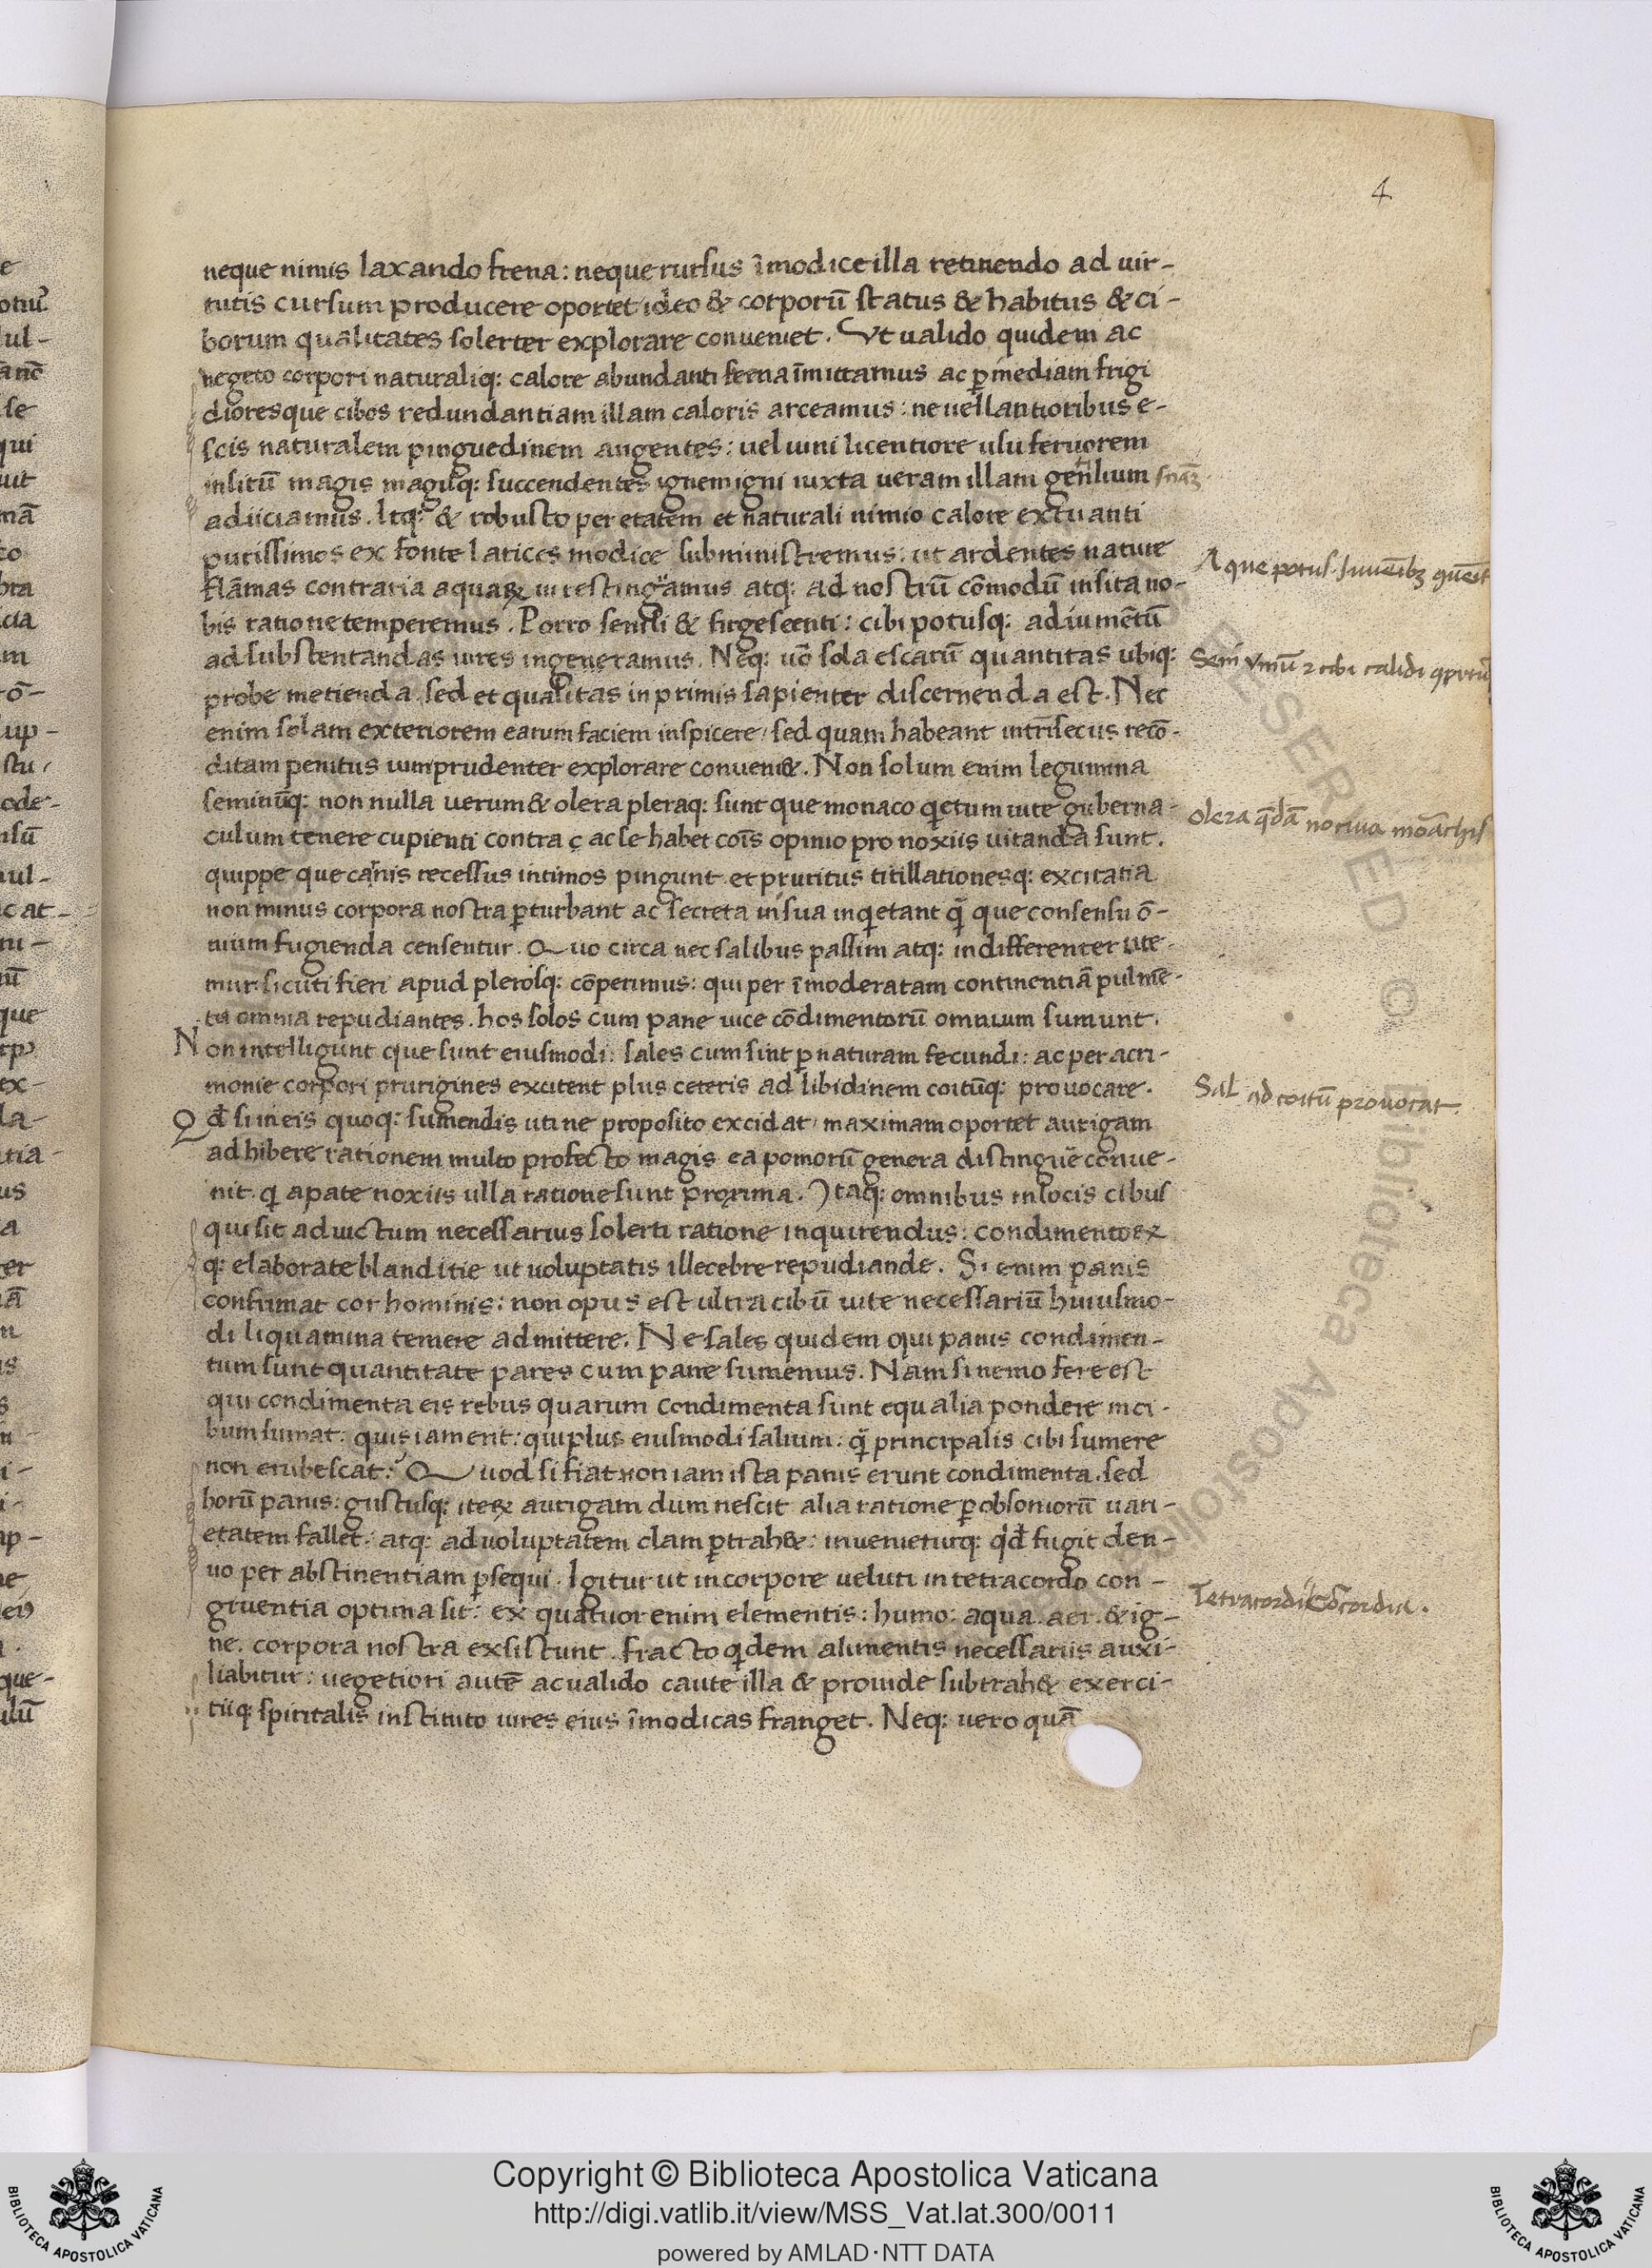 4
neque nimis laxando frena: neque rursus īmodice illa retinendo ad uir-
tutis cursum producere oportet ideo & corporū status & habitus & ci-
borum qualitates solerter explorare conueniet. Vt ualido quidem ac
uegeto corpori naturaliq: calore abundanti frena īmittamus ac p̱ inediam frigi
dioresque cibos redundantiam illam caloris arceamus: ne uel lautioribus e-
scis naturalem pinguedinem augentes: uel uini licentiore usu feruorem
insitū magis magisq: succendentes ignem igni iuxta ueram illam gentilium snīaʒ
adiiciamus. Itq: & robusto per etatem et naturali nimio calore extuanti
purissimos ex fonte latices modice subministremus: ut ardentes nature
flāmas contraria aquaꝝ ui restinguamus atq: ad nostrū cōmodū insita no-
bis ratione temperemus. Porro senili & frigescenti: cibi potusq: adiumētū
ad substentandas uires ingeneramus. Neq: uō sola escarū quantitas ubiq:
probe metienda sed et qualitas in primis sapienter discernenda est. Nec
enim solam exteriorem earum faciem inspicere, sed quam habeant intrīsecus recō-
ditam penitus uim prudenter explorare conueni&. Non solum enim legumina
seminūq: non nulla uerum & olera pleraq: sunt que monaco qͥetum uite guberna-
culum tenere cupienti contra ꝙ ac se habet cōis opinio pro noxiis uitanda sunt.
quippe que carnis recessus intimos pingunt et pruritus titillationesq: excitatia
non minus corpora nostra p̱turbant ac secreta uī sua inqͥetant qᷓ que consensu ō-
nium fugienda censentur. Quo circa nec salibus passim atq: indifferenter ute-
mur sicuti fieri apud plerosq: cōperimus: qui per īmoderatam continentiā pulmē-
ta omnia repudiantes. hos solos cum pane uice cōdimentorū omnium sumunt.
Non intelligunt que sunt eiusmodi: sales cum sint p̱ naturam fecundi: ac per acri-
monie corpori prurigines excitent plus ceteris ad libidinem coitūq: prouocare.
Qđ si in eis quoq: sumendis uti ne proposito excidat, maximam oportet aurigam
adhibere rationem multo profecto magis ea pomorū genera distinguē conue-
nit. qͥ apate noxiis ulla ratione sunt proxima. Itaq: omnibus in locis cibus
qui sit ad uictum necessarius solerti ratione inquirendus: condimentoꝝ
q: elaborate blanditie ut uoluptatis illecebre repudiande. Si enim panis
confirmat cor hominis: non opus est ultra cibū uite necessariū huiusmo-
di liquamina temere admittere. Ne sales quidem qui panis condimen-
tum sunt quantitate pares cum pane sumemus. Nam si nemo fere est
qui condimenta eis rebus quarum condimenta sunt equalia pondere in ci-
bum sumat: quis iam erit: qui plus eiusmodi salium: qᷓ principalis cibi sumere
non erubescat? Quod si fiat non iam ista panis erunt condimenta. sed
horū panis: gustusq: iteꝝ aurigam dum nescit alia ratione p̱ obsoniorū uari-
etatem fallet: atq: ad uoluptatem clam p̱trah&: inuenieturq: qđ fugit den-
uo per abstinentiam p̱sequi. Igitur ut in corpore ueluti in tetracordo con-
gruentia optima sit: ex quatuor enim elementis: humo: aqua. aer. & ig-
ne. corpora nostra exsistunt. fracto qͥdem alimentis necessariis auxi-
liabitur: uegetiori autē ac ualido caute illa & prouide subtrah& exerci-
tiiq: spiritalis instituto uires eius īmodicas franget. Neq: uero quā
Aque potus Iuuēibʒ quēit
olera qᷓdā nociua moāchis
Sal ad coitū prouocat.